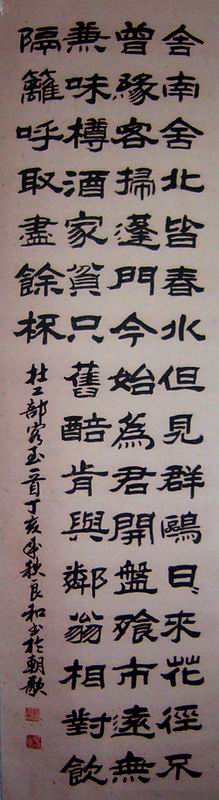 舍南舍北皆春水但見群鷗日〻來花徑不
曾緣客掃蓬門今始為君開盤飧市遠無
兼味樽酒家貧只舊醅肯與鄰翁相對飲
隔籬呼取盡餘杯
杜工部客至一首丁亥年秋良和书於朝歌